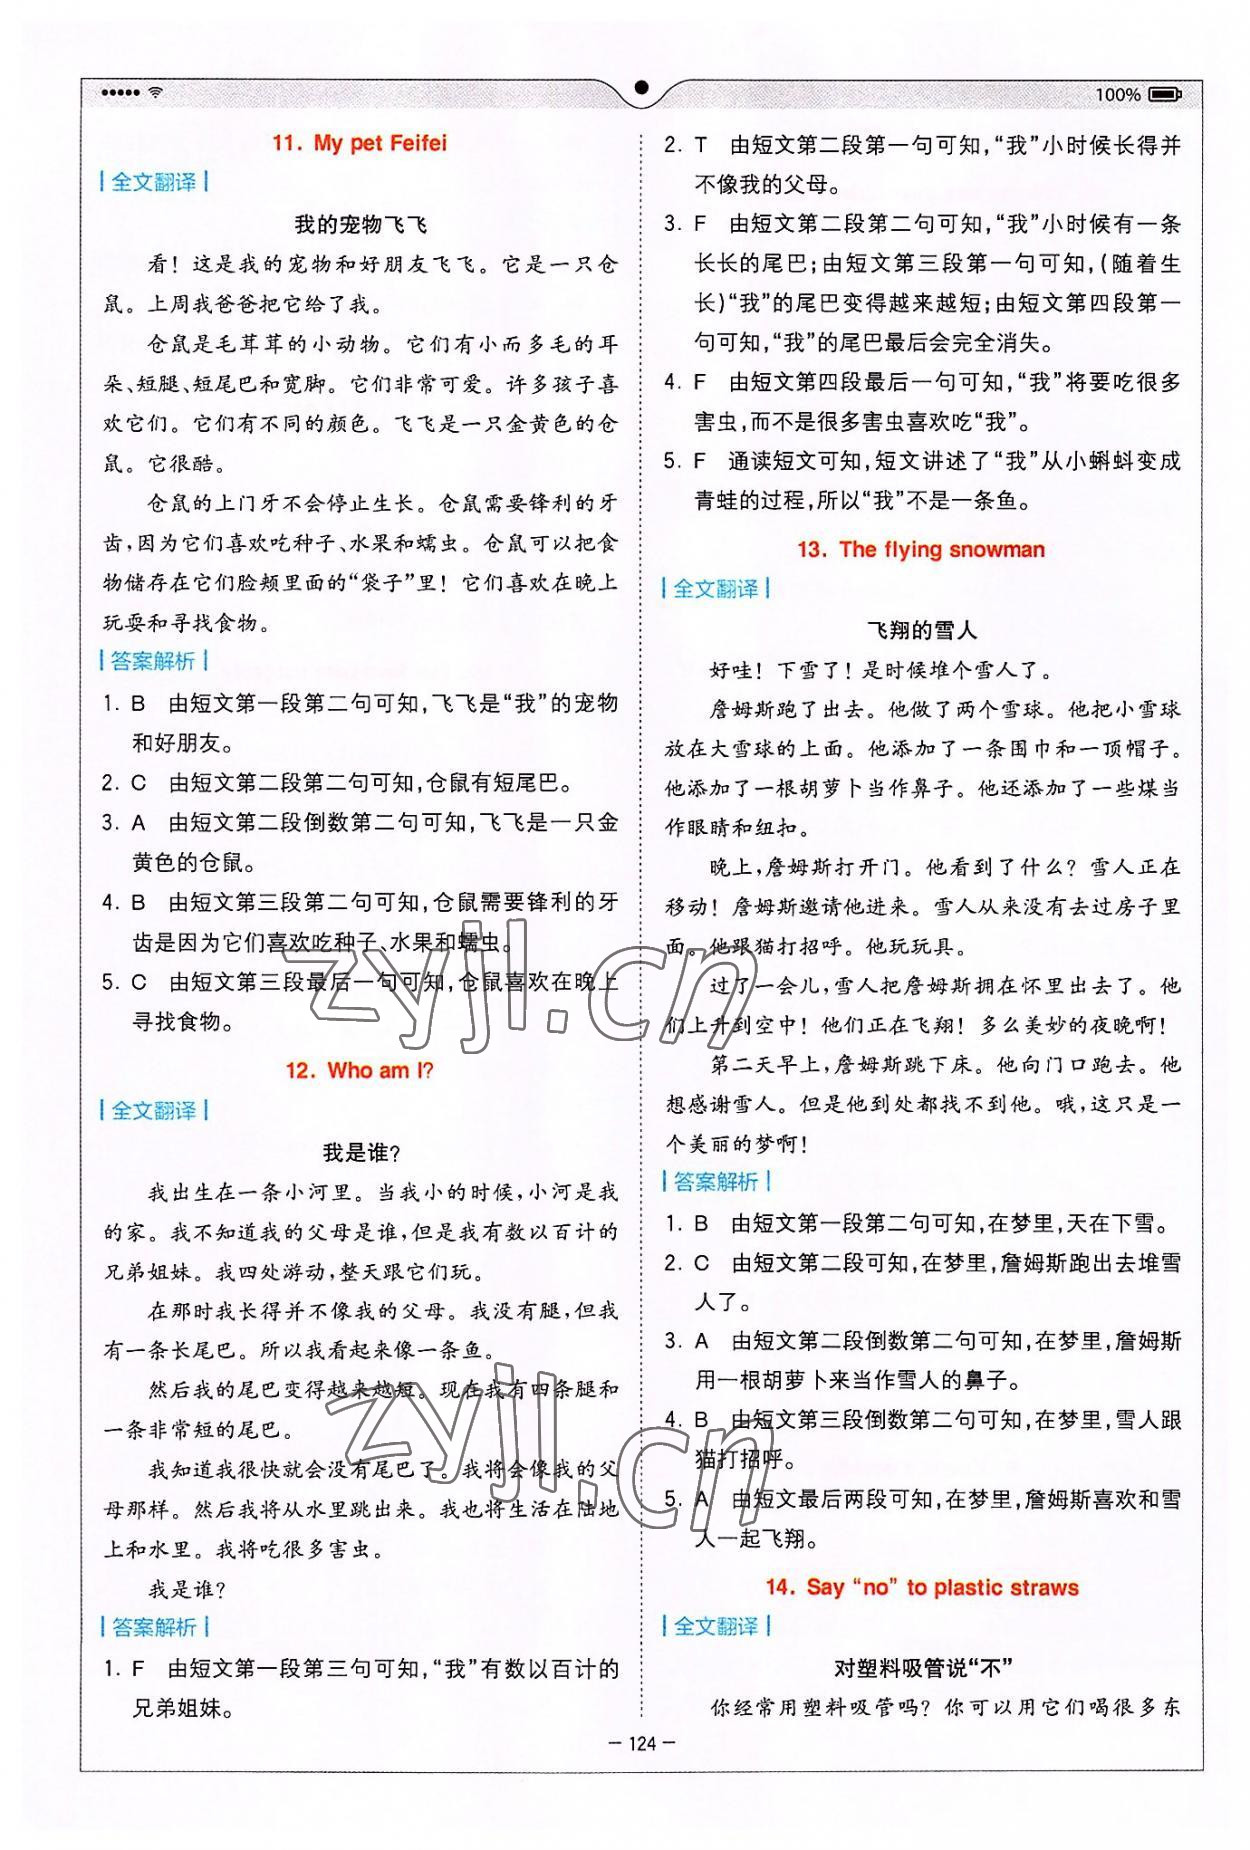 100%
11. My pet Feifei
全文翻译
我的宠物飞飞
看！这是我的宠物和好朋友飞飞。它是一只仓
鼠。上周我爸爸把它给了我。
仓鼠是毛茸茸的小动物。它们有小而多毛的耳
朵、短腿、短尾巴和宽脚。它们非常可爱。许多孩子喜
欢它们。它们有不同的颜色。飞飞是一只金黄色的仓
鼠。它很酷。
仓鼠的上门牙不会停止生长。仓鼠需要锋利的牙
齿,因为它们喜欢吃种子、水果和蠕虫。仓鼠可以把食
物储存在它们脸颊里面的“袋子”里！它们喜欢在晚上
玩耍和寻找食物。
答案解析
1. B 由短文第一段第二句可知,飞飞是“我”的宠物
和好朋友。
2. C 由短文第二段第二句可知,仓鼠有短尾巴。
3. A 由短文第二段倒数第二句可知,飞飞是一只金
黄色的仓鼠。
4. B 由短文第三段第二句可知,仓鼠需要锋利的牙
齿是因为它们喜欢吃种子、水果和蠕虫。
5. C 由短文第三段最后一句可知,仓鼠喜欢在晚上
寻找食物。
12. Who am I?
全文翻译
我是谁?
我出生在一条小河里。当我小的时候,小河是我
的家。我不知道我的父母是谁,但是我有数以百计的
兄弟姐妹。我四处游动,整天跟它们玩。
在那时我长得并不像我的父母。我没有腿,但我
有一条长尾巴。所以我看起来像一条鱼。
然后我的尾巴变得越来越短。现在我有四条腿和
一条非常短的尾巴。
我知道我很快就会没有尾巴了。我将会像我的父
母那样。然后我将从水里跳出来。我也将生活在陆地
上和水里。我将吃很多害虫。
我是谁?
答案解析
1. F 由短文第一段第三句可知,“我”有数以百计的
兄弟姐妹。
2. T 由短文第二段第一句可知,“我”小时候长得并
不像我的父母。
3. F 由短文第二段第二句可知,“我”小时候有一条
长长的尾巴;由短文第三段第一句可知,(随着生
长)“我”的尾巴变得越来越短;由短文第四段第一
句可知,“我”的尾巴最后会完全消失。
4. F 由短文第四段最后一句可知,“我”将要吃很多
害虫,而不是很多害虫喜欢吃“我”。
5. F 通读短文可知,短文讲述了“我”从小蝌蚪变成
青蛙的过程,所以“我”不是一条鱼。
13. The flying snowman
全文翻译
飞翔的雪人
好哇！下雪了！是时候堆个雪人了。
詹姆斯跑了出去。他做了两个雪球。他把小雪球
放在大雪球的上面。他添加了一条围巾和一顶帽子。
他添加了一根胡萝卜当作鼻子。他还添加了一些煤当
作眼睛和纽扣。
晚上,詹姆斯打开门。他看到了什么？雪人正在
移动！詹姆斯邀请他进来。雪人从来没有去过房子里
面。他跟猫打招呼。他玩玩具。
过了一会儿,雪人把詹姆斯拥在怀里出去了。他
们上升到空中！他们正在飞翔！多么美妙的夜晚啊！
第二天早上,詹姆斯跳下床。他向门口跑去。他
想感谢雪人。但是他到处都找不到他。哦,这只是一
个美丽的梦啊！
答案解析
1. B 由短文第一段第二句可知,在梦里,天在下雪。
2. C 由短文第二段可知,在梦里,詹姆斯跑出去堆雪
人了。
3. A 由短文第二段倒数第二句可知,在梦里,詹姆斯
用一根胡萝卜来当作雪人的鼻子。
4. B 由短文第三段倒数第二句可知,在梦里,雪人跟
猫打招呼。
5. A 由短文最后两段可知,在梦里,詹姆斯喜欢和雪
人一起飞翔。
14. Say “no” to plastic straws
全文翻译
对塑料吸管说“不”
你经常用塑料吸管吗？你可以用它们喝很多东
- 124 -
zyjl.cn
zyjl.cn